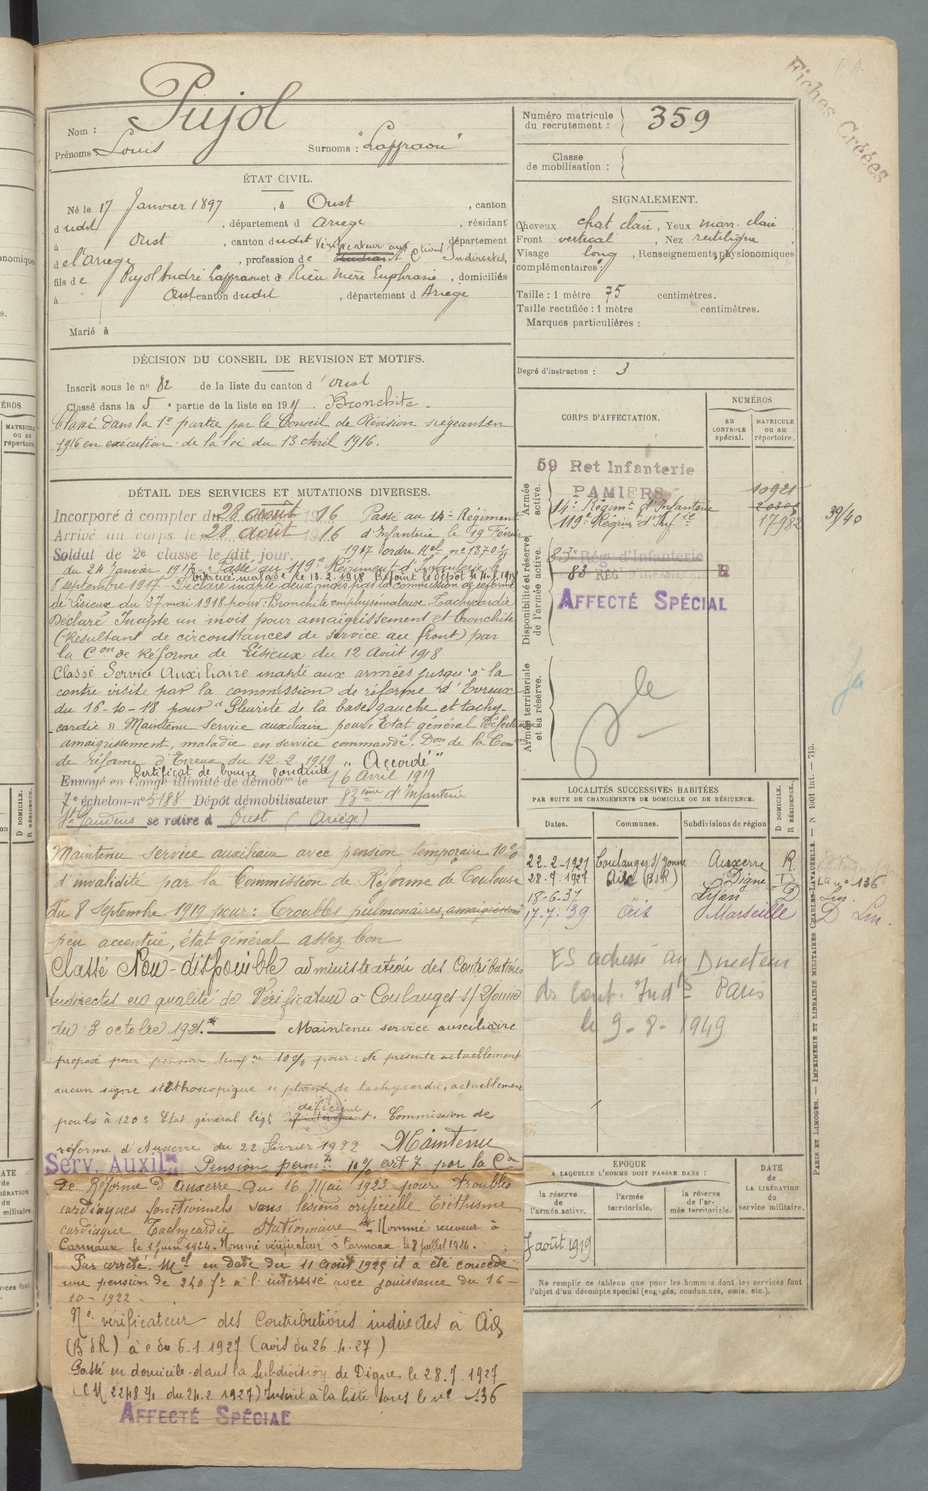 Fiches Créées
Nom : Pujol
Prénoms Louis Surnoms : "Laffraou"
Numéro matricule du recrutement : 359
Classe de mobilisation :
ÉTAT CIVIL.
Né le 17 Janvier 1897, à Oust, canton
dudit, département d Ariège, résidant
à Oust, canton dudit, département
d el'Ariège, profession de Vérificateur aux Ctions Indirectes,
fils de Pujol André Laffraou et de Rieu Mère Euphrasie, domiciliés
à Oust canton dudit, département d Ariège
Marié à
SIGNALEMENT.
Cheveux chat clair, Yeux marr. clair
Front vertical, Nez rectiligne,
Visage long, Renseignements physionomiques
complémentaires :
Taille : 1 mètre 75 centimètres.
Taille rectifiée : 1 mètre centimètres.
Marques particulières :
Degré d'instruction : 3
DÉCISION DU CONSEIL DE REVISION ET MOTIFS.
Inscrit sous le nº 82 de la liste du canton d'oust
Classé dans la 5e partie de la liste en 191 . Bronchite.
Classé dans la 1e partie par le Conseil de Révision siégeant en
1916 en exécution de la loi du 13 Avril 1916.
DÉTAIL DES SERVICES ET MUTATIONS DIVERSES.
Incorporé à compter du 28 août 1916 Passé au 14e Régiment
Arrivé au corps le 28 août 1916 d'Infanterie le 19 Févr
Soldat de 2e classe le dit jour. 1917 ordre Mel nº 13707/4
du 24 janvier 1917. Passé au 119e Régiment d'Infanterie le
8 septembre 1917. Evacué malade le 13.2.1918 Rejoint le dépôt le
Déclaré inapte deux mois par la commission de réforme
de Lisieux du 27 mai 1918 pour : Bronchite emphysémateuse. Tachycardie
Déclaré Inapte un mois pour amaigrissement et bronchite
(Résultant de circonstances de service au front) par
la Con de Réforme de Lisieux du 12 Août 1918
Classé Service Auxiliaire inapte aux armées jusqu'à la
contre visite par la commission de réforme d'Evreux
du 16-10-18 pour "Pleurite de la base gauche et tachy-
cardie" Maintenu service auxiliaire pour Etat général
amaigrissement, maladie en service commandé. Don de la Com
de réforme d'Evreux du 12-2-1919
Certificat de bonne conduite "Accordé"
Envoyé en Congé illimité de démob. le 6 Avril 1919
7e échelon - nº 5188 Dépôt démobilisateur 83ème d'Infanterie
St Gaudens se retire à Oust (Ariège)
Maintenu service auxiliaire avec pension temporaire 10%
d'invalidité par la Commission de Réforme de Toulouse
du 8 Septembre 1919 pour : Troubles pulmonaires, amaigrissement
peu accentué, état général assez bon
Classé Non-disponible administration des Contributions
Indirectes en qualité de Vérificateur à Coulanges s/ Yonne
du 3 octobre 1921. Maintenu service auxiliaire
proposé pour pension tempre 10% pour : Ne présente actuellement
aucun signe stéthoscopique se plaint de tachycardie, actuellement
pouls à 120 : Etat général légt déficient. Commission de
réforme d'Auxerre du 22 Février 1922 Maintenu
Serv. Auxilre Pension permte 10% art 7 par la Con
de Réforme d'Auxerre du 16 Mai 1923 pour troubles
cardiaques fonctionnels sans lésions orificielle Eréthisme
cardiaque Tachycardie Stationnaire Nommé receveur à
Carmaux le 1 juin 1924. Nommé vérificateur à Carmaux le 8 juillet 1924.
Par arrêté Mel en date du 11 août 1925 il a été concédé
une pension de 240 fr à l'intéressé avec jouissance du 16-
10-1922.
Né vérificateur des Contributions indirectes à Aix
(B d R) à c du 6.1.1927 (avis du 26.4.27)
Passé en domicile dans la Subdivision de Digne le 28.7.1927
(CM 2248 7/1 du 24.2.1927) Inscrit à la liste sous le nº 136
AFFECTÉ SPÉCIAL
CORPS D'AFFECTATION.
NUMÉROS
AU CONTRÔLE spécial.
MATRICULE OU AU répertoire.
Armée active.
59 Ret Infanterie
PAMIERS 10921
14e Régimt d'Infanterie
119e Régim d'Infie 17982
39/40
Disponibilité et réserve de l'armée active.
83e Rég d'Infanterie
83 REG D'INFANTERIE R
AFFECTÉ SPÉCIAL
Armée territoriale et sa réserve.
LOCALITÉS SUCCESSIVES HABITÉES
PAR SUITE DE CHANGEMENTS DE DOMICILE OU DE RÉSIDENCE.
Dates. Communes. Subdivisions de région
D DOMICILE.
R RÉSIDENCE.
22-2-1921 Coulanges s/ Yonne Auxerre R
28-7-1927 Aix (BdR) Digne D 136
18-6-37 Lyon D
17-7-39 Aix Marseille D
ES adressé au Directeur
des Cont. Indes Paris
le 9-8-1949
ÉPOQUE
A LAQUELLE L'HOMME DOIT PASSER DANS :
la réserve de l'armée active.
l'armée territoriale.
la réserve de l'armée territoriale.
DATE de LA LIBÉRATION du service militaire.
7 août 1919
Ne remplir ce tableau que pour les hommes dont les services font
l'objet d'un décompte spécial (engagés, condamnés, omis, etc.).
PARIS ET LIMOGES. — IMPRIMERIE ET LIBRAIRIE MILITAIRES CHARLES-LAVAUZELLE. — N 1601 int. — 715.